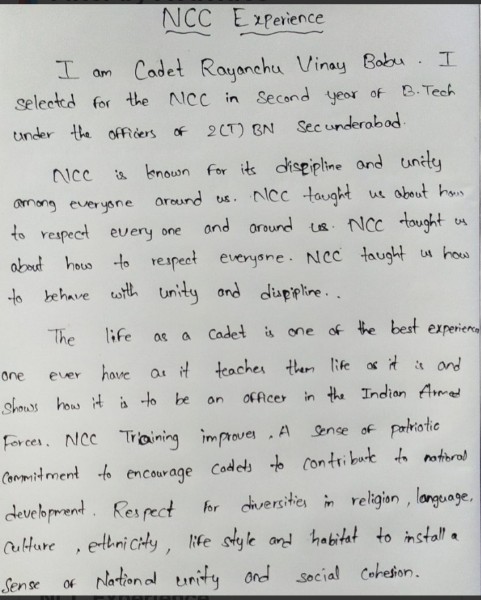 NCC Experience
I am Cadet Rayanchu Vinay Babu. I
selected for the NCC in Second year of B.Tech
under the officers of 2(T) BN Secunderabad.
NCC is known for its dispipline and unity
among everyone around us. NCC taught us about how
to respect every one and around us. NCC taught us
about how to respect everyone. NCC taught us how
to behave with unity and dispipline..
The life as a cadet is one of the best experience
one ever have as it teaches them life as it is and
shows how it is to be an officer in the Indian Armed
Forces. NCC Training improves, A sense of patriotic
Commitment to encourage cadets to contribute to national
development. Respect for diversities in religion, language,
Culture, ethnicity, life style and habitat to install a
Sense of National unity and social Cohesion.